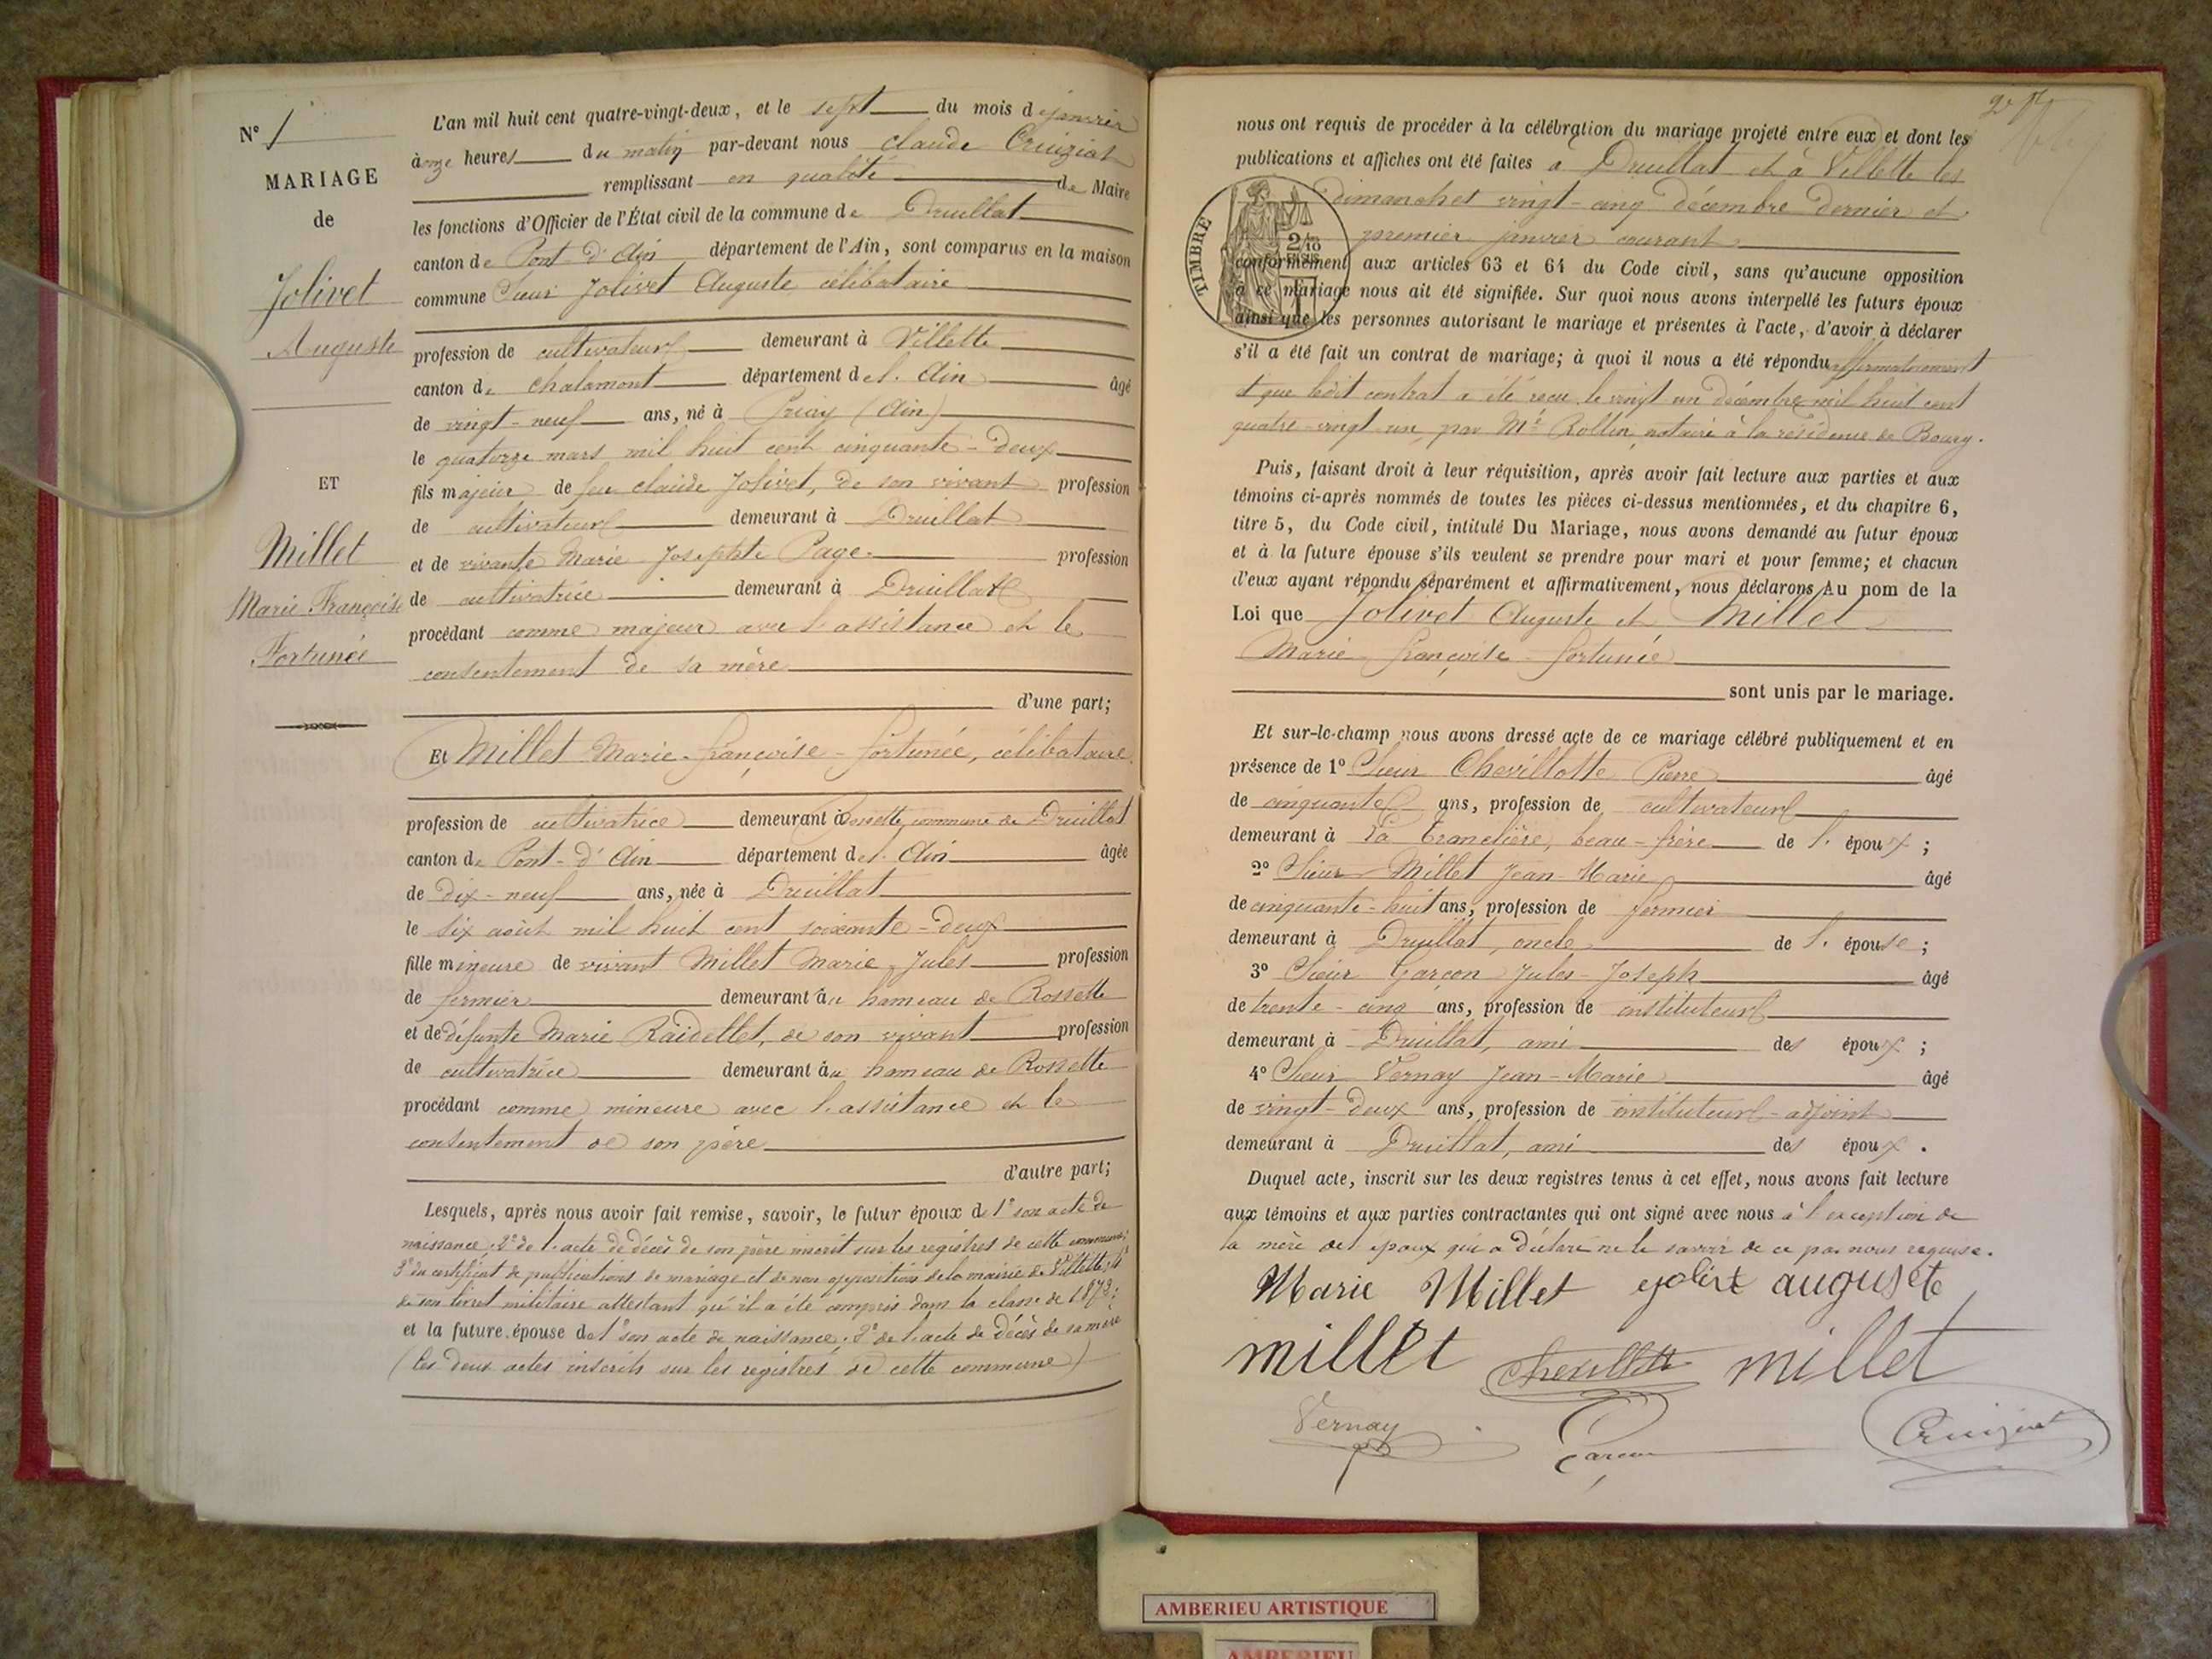 N° 1
MARIAGE
de
Jolivet
Auguste
ET
Millet
Marie Françoise
Fortunée
L'an mil huit cent quatre-vingt-deux, et le sept du mois de janvier
à onze heures du matin par-devant nous Claude Cruiziat
remplissant en qualité de Maire
les fonctions d'Officier de l'État civil de la commune de Druillat
canton de Pont-d'Ain département de l'Ain, sont comparus en la maison
commune Sieur Jolivet Auguste, célibataire
profession de cultivateur demeurant à Villette
canton de Chalamont département de l'Ain âgé
de vingt-neuf ans, né à Priay (Ain)
le quatorze mars mil huit cent cinquante-deux
fils majeur de feu Claude Jolivet, de son vivant profession
de cultivateur demeurant à Druillat
et de vivante Marie Josephte Page profession
de cultivatrice demeurant à Druillat
procédant comme majeur avec l'assistance et le
consentement de sa mère
d'une part;
Et Millet Marie-Françoise-Fortunée, célibataire
profession de cultivatrice demeurant à Rossette, commune de Druillat
canton de Pont-d'Ain département de l'Ain âgée
de dix-neuf ans, née à Druillat
le six août mil huit cent soixante-deux
fille mineure de vivant Millet Marie-Jules profession
de fermier demeurant au hameau de Rossette
et de défunte Marie Raidellet, de son vivant profession
de cultivatrice demeurant au hameau de Rossette
procédant comme mineure avec l'assistance et le
consentement de son père
d'autre part;
Lesquels, après nous avoir fait remise, savoir, le futur époux de 1° son acte de
naissance; 2° de l'acte de décès de son père inscrit sur les registres de cette commune;
3° du certificat de publications de mariage et de non opposition de la mairie de Villette; 4°
de son livret militaire attestant qu'il a été compris dans la classe de 1872;
et la future épouse de 1° son acte de naissance; 2° de l'acte de décès de sa mère
(les deux actes inscrits sur les registres de cette commune)
nous ont requis de procéder à la célébration du mariage projeté entre eux et dont les
publications et affiches ont été faites à Druillat et à Villette les
dimanches vingt-cinq décembre dernier et
premier janvier courant
TIMBRE
conformément aux articles 63 et 64 du Code civil, sans qu'aucune opposition
à ce mariage nous ait été signifiée. Sur quoi nous avons interpellé les futurs époux
ainsi que les personnes autorisant le mariage et présentes à l'acte, d'avoir à déclarer
s'il a été fait un contrat de mariage; à quoi il nous a été répondu affirmativement
et que ledit contrat a été reçu le vingt un décembre mil huit cent
quatre-vingt-un, par Me Rollin, notaire à la résidence de Bourg.
Puis, faisant droit à leur réquisition, après avoir fait lecture aux parties et aux
témoins ci-après nommés de toutes les pièces ci-dessus mentionnées, et du chapitre 6,
titre 5, du Code civil, intitulé Du Mariage, nous avons demandé au futur époux
et à la future épouse s'ils veulent se prendre pour mari et pour femme; et chacun
d'eux ayant répondu séparément et affirmativement, nous déclarons Au nom de la
Loi que Jolivet Auguste et Millet
Marie-Françoise-Fortunée
sont unis par le mariage.
Et sur-le-champ nous avons dressé acte de ce mariage célébré publiquement et en
présence de 1° Sieur Chevillotte Pierre âgé
de cinquante ans, profession de cultivateur
demeurant à La Tranclière, beau-frère de l'époux;
2° Sieur Millet Jean-Marie âgé
de cinquante-huit ans, profession de fermier
demeurant à Druillat, oncle de l'épouse;
3° Sieur Garçon Jules-Joseph âgé
de trente-cinq ans, profession de instituteur
demeurant à Druillat, ami des époux;
4° Sieur Vernay Jean-Marie âgé
de vingt-deux ans, profession de instituteur-adjoint
demeurant à Druillat, ami des époux.
Duquel acte, inscrit sur les deux registres tenus à cet effet, nous avons fait lecture
aux témoins et aux parties contractantes qui ont signé avec nous à l'exception de
la mère de l'époux qui a déclaré ne le savoir de ce par nous requise.
Marie Millet jolivet auguste
millet Chevillotte millet
Vernay Garçon Cruiziat
AMBERIEU ARTISTIQUE
AMBERIEU